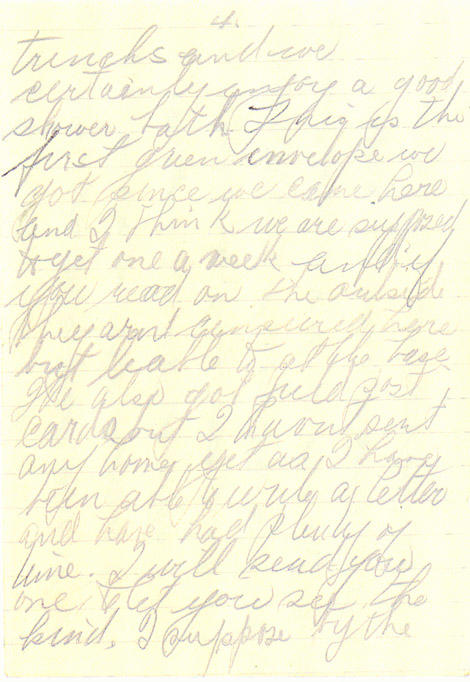 4.
trenchs and we
certainly enjoy a good
shower bath. This is the
first green envelope we
got since we came here
and I think we are supposed
to get one a week and if
you read on the outside
they arnt censured here
but leable to at the base
We also got field post
cards but I havnt sent
any home yet as I have
been able to write a letter
and have had plenty of
time. I will send you
one to let you see the
kind. I suppose by the